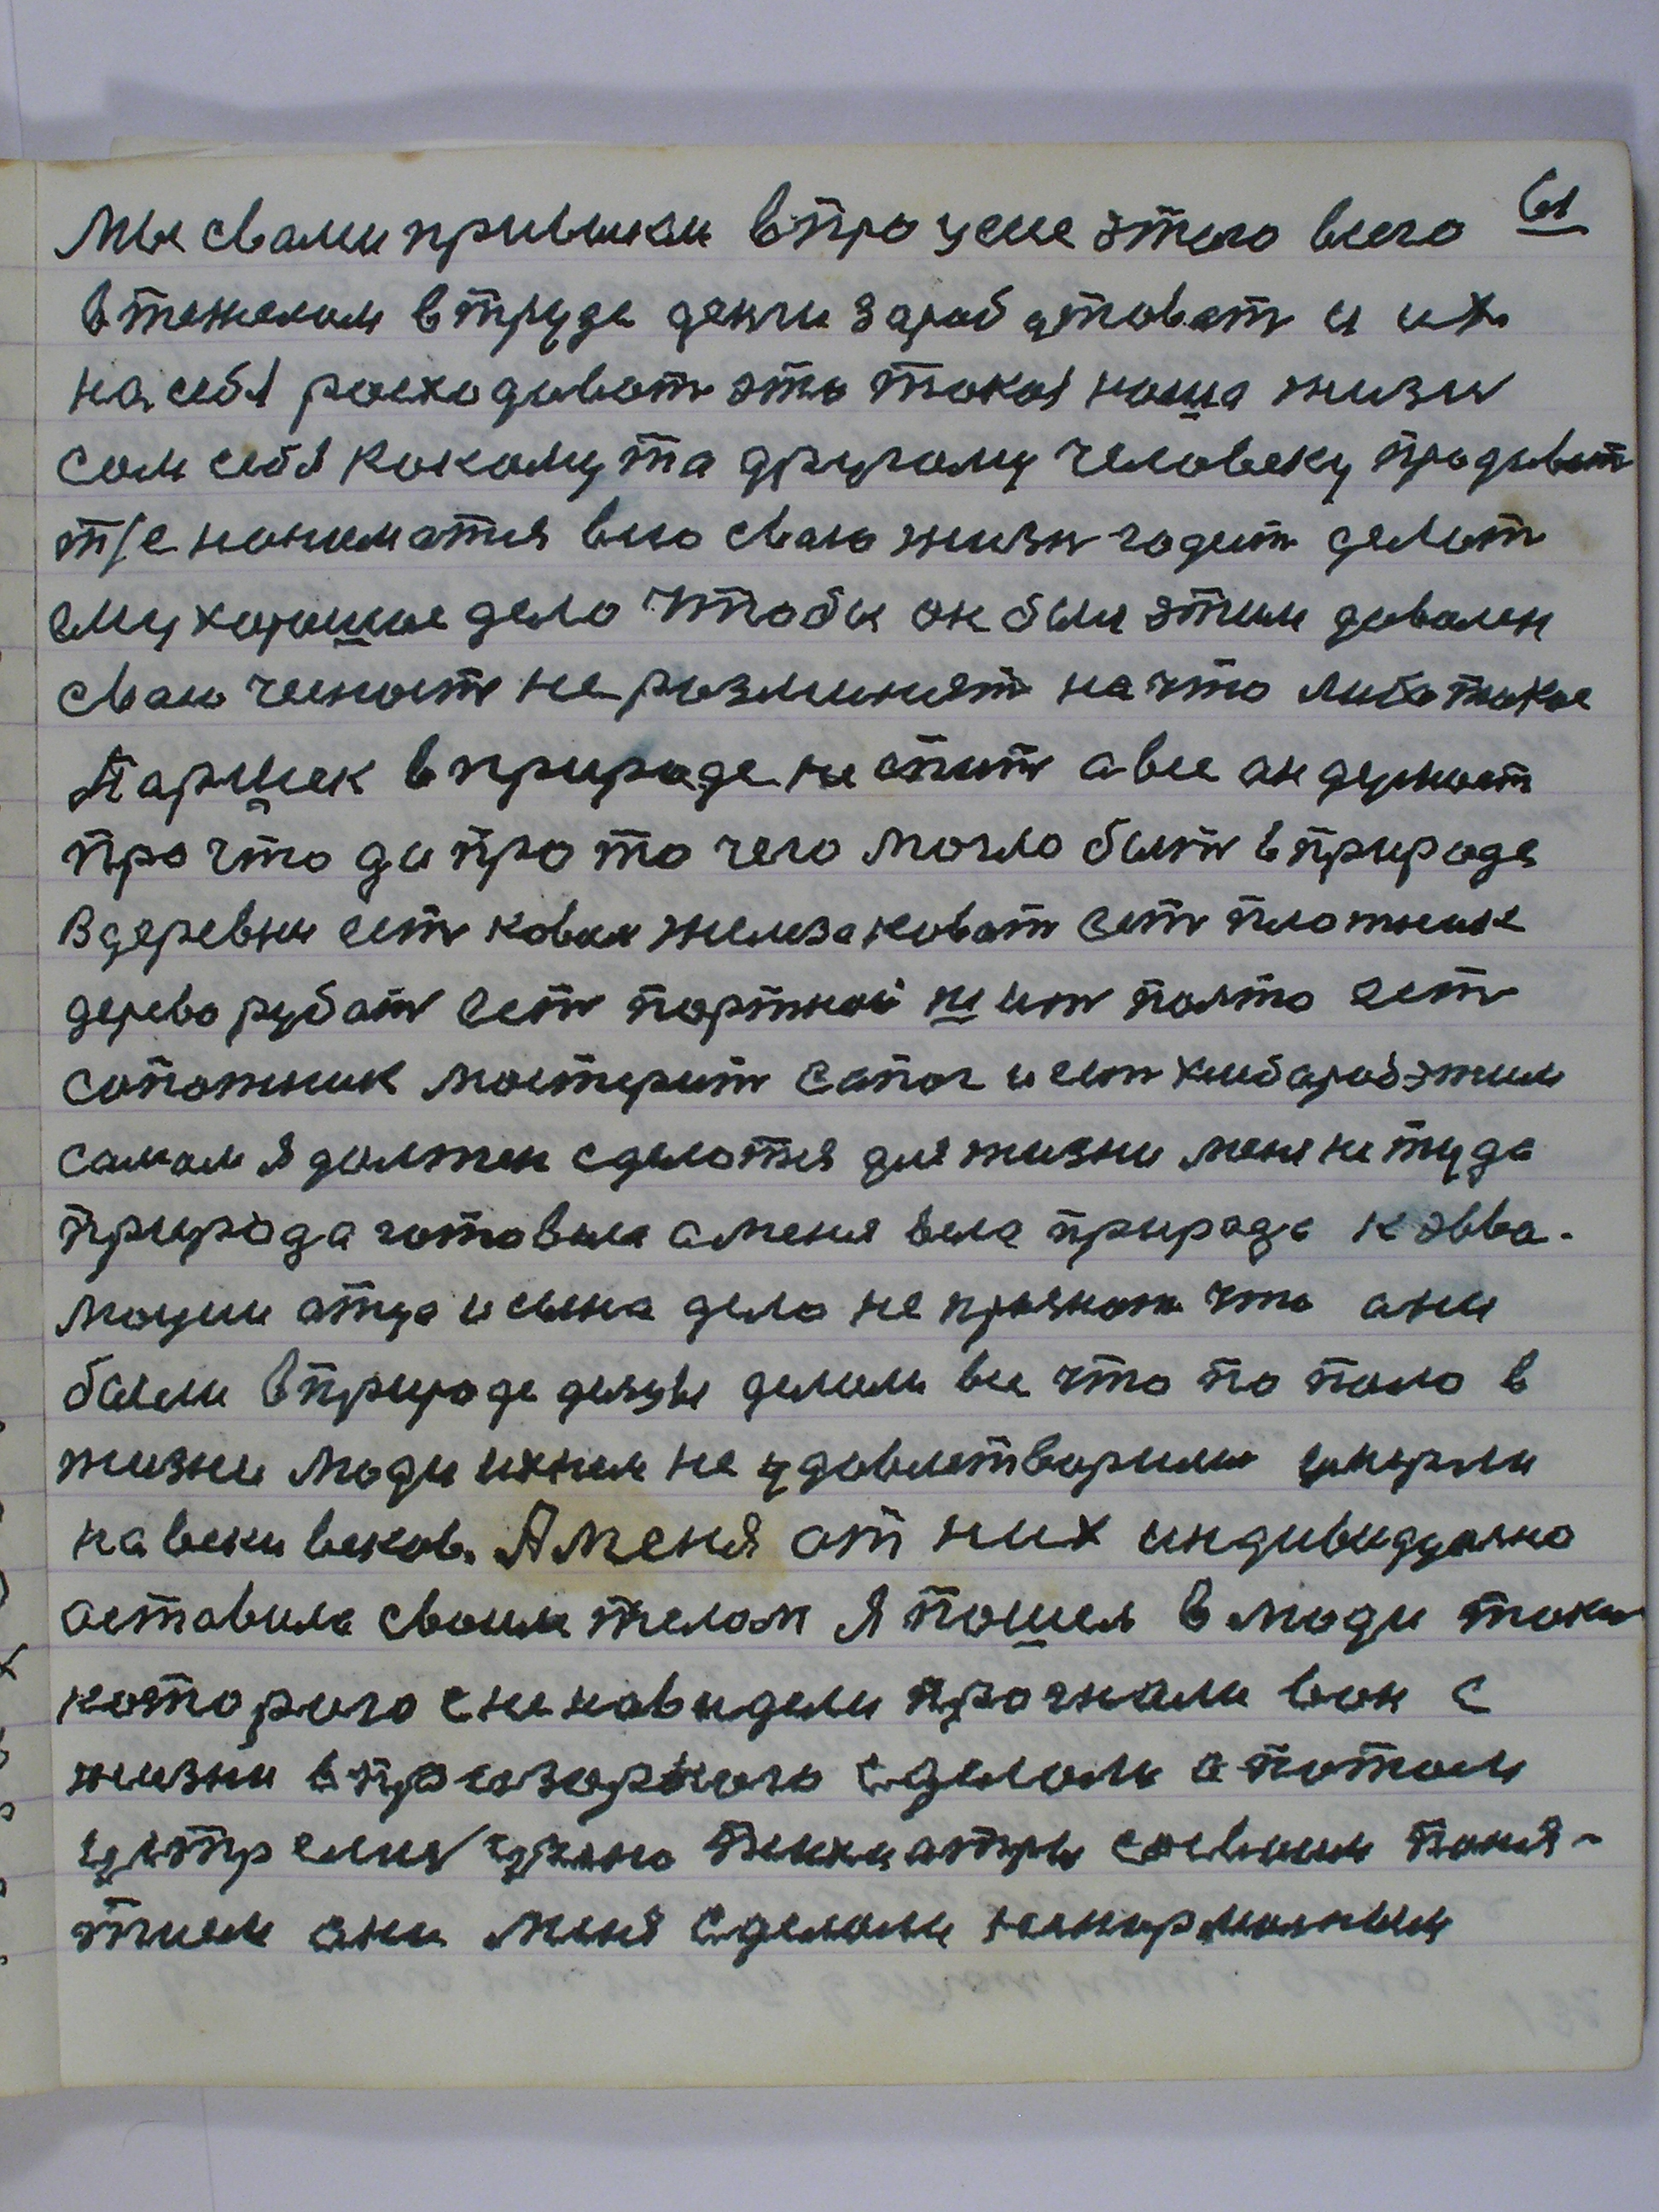 61
Мы свами привыкли впроцесе этого всего
втежелом втруде денги заработоват и их
на себя росходоват это такоя наша жизн
сам себя какому та другому человеку продават
т/е нониматся всю сваю жизн годит делат
ему хорошое дело чтобы он был этим доволен
сваю чесност не розминят на что либо такое
Паршек вприроде не спит а все он думоет
про что да про то чего могло быт вприроде
Вдеревни ест ковал железо коват ест плотник
дерево рубат ест портной шит полто ест
сапожник мостерит сапог и ест хлебароб этим
самом я должен сделатся для жизни меня не туда
природа готовила а меня вела природа к эвва-
люции атца и сына дело не признат что ани
были вприроде дезув делали все что по пало в
жизни люди ихним не удовлетворили умерли
на веки веков. А меня от них индивидуално
аставила своим телом Я пошел в люди токи
которого сненавидели прогнали вон с
жизни а призорного сделали а потом
устремляли психиатры своим поня-
тием ани меня сделали ненормалным